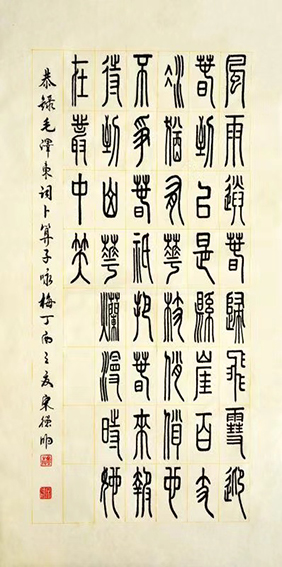 風雨送春歸飛雪迎
春到已是縣崖百丈
冰猶有華枝俏俏也
不爭春祇把春來報
待到山華爛漫時她
在叢中笑
恭錄毛澤東詞卜算子咏梅丁酉之夏